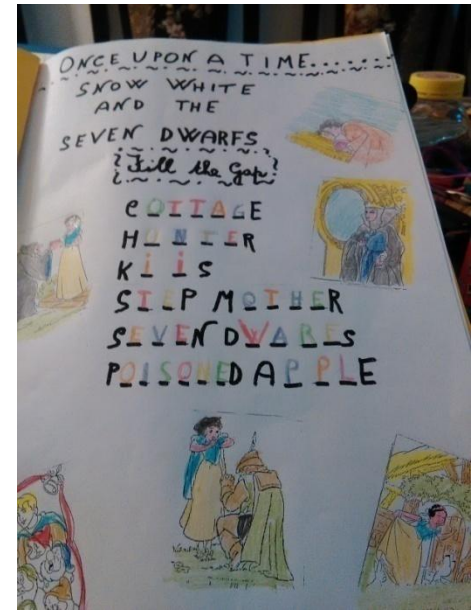 ONCE UPON A TIME.......
SNOW WHITE
AND THE
SEVEN DWARFS
Fill the Gap
COTTAGE
HUNTER
KIIS
STEP MOTHER
SEVEN DWARFS
POISONED APPLE